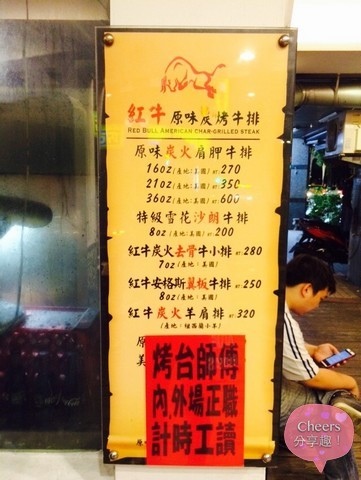 紅牛 原味炭烤牛排
RED BULL AMERICAN CHAR-GRILLED STEAK
原味炭火肩胛牛排
16oz(產地:美國) NT:270
21oz(產地:美國) NT:350
36oz(產地:美國) NT:600
特級雪花沙朗牛排
8oz(產地:美國) NT:200
紅牛炭火去骨牛小排 NT:280
7oz(產地:美國)
紅牛安格斯翼板牛排 NT:250
8oz(產地:美國)
紅牛炭火羊肩排 NT:320
(產地:紐西蘭小羊)
原
美
烤台師傅
內.外場正職
計時工讀
原
Cheers
分享趣!